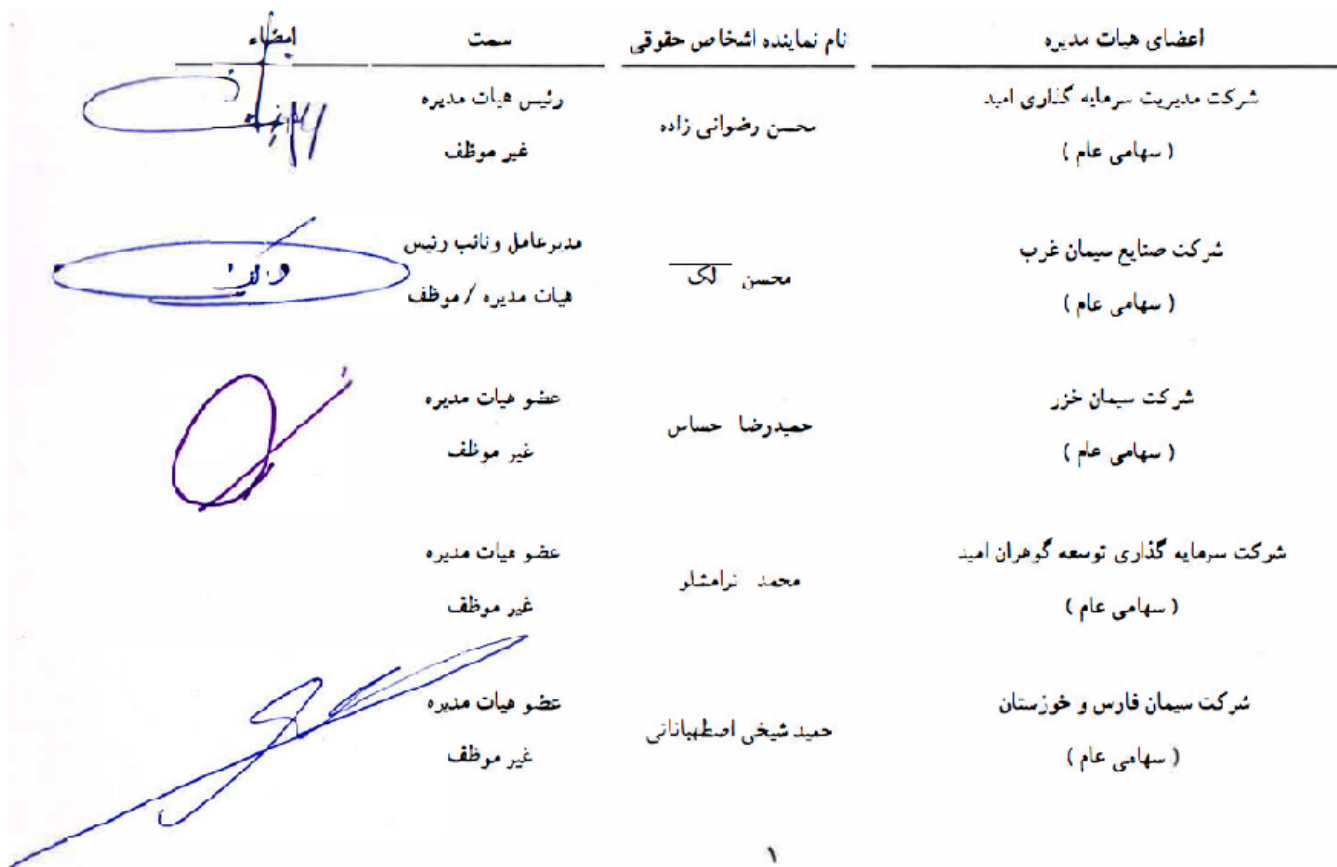 اعضای هیات مدیره نام نماینده اشخاص حقوقی سمت امضاء
شرکت مدیریت سرمایه گذاری امید
( سهامی عام )
محسن رضوانی زاده
رئیس هیات مدیره
غیر موظف
شرکت صنایع سیمان غرب
( سهامی عام )
محسن لک
مدیرعامل و نائب رئیس
هیات مدیره / موظف
شرکت سیمان خزر
( سهامی عام )
حمیدرضا حساس
عضو هیات مدیره
غیر موظف
شرکت سرمایه گذاری توسعه گوهران امید
( سهامی عام )
محمد
عضو هیات مدیره
غیر موظف
شرکت سیمان فارس و خوزستان
( سهامی عام )
حمید شیخی اصطهباناتی
عضو هیات مدیره
غیر موظف
۱